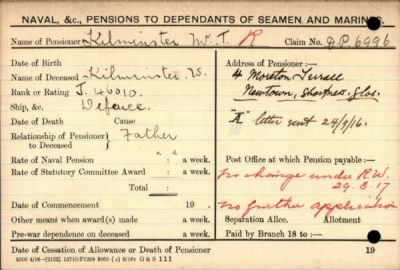 NAVAL, &c., PENSIONS TO DEPENDANTS OF SEAMEN AND MARINES.
Name of Pensioner Kilminster Mr. T. R Claim No. D.P. 6996
Date of Birth
Address of Pensioner :—
Name of Deceased Kilminster W.
4 Moreton Terrace
Rank or Rating J. 46010
Newtown, Sharpness, Glos.
Ship, &c. Defence
Date of Death Cause
"A" letter sent 24/9/16.
Relationship of Pensioner to Deceased } Father
Rate of Naval Pension : a week.
Post Office at which Pension payable :—
Rate of Statutory Committee Award : a week.
no change under R.W.
29.3.17
Total : a week.
Date of Commencement 19 .
no further application
Other means when award made : a week.
Separation Allce. Allotment
Pre-war dependence on deceased : a week.
Paid by Branch 18 to :—
Date of Cessation of Allowance or Death of Pensioner 19
G & S 111